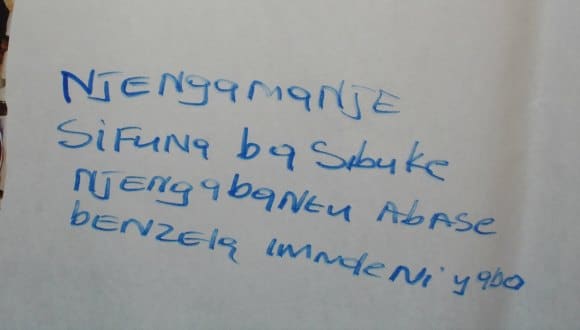 NJENgamaNJE
SiFuNa ba Sibuke
NJENgabaNtu AbASE
bENZEla immdeNi yabo